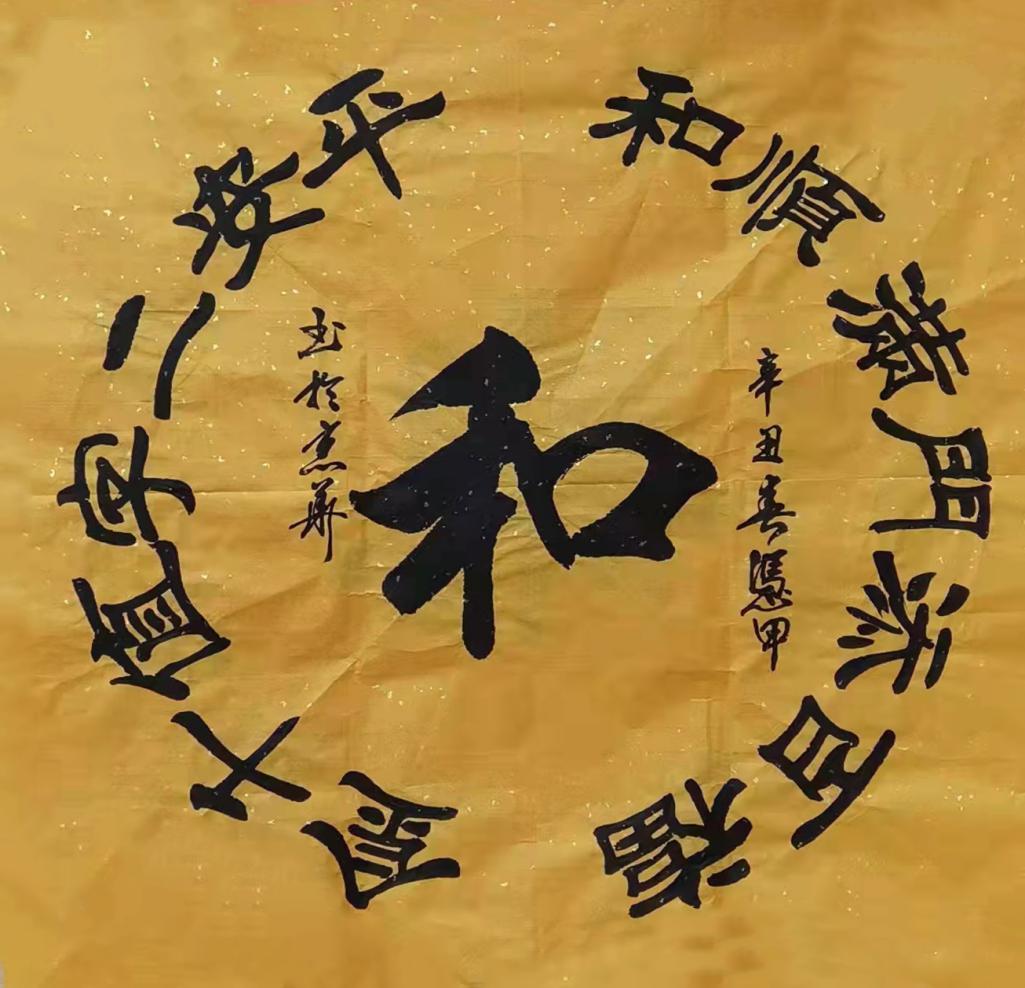 和順滿門添百福
平安二字值千金
和
辛丑春憑甲
书於京華